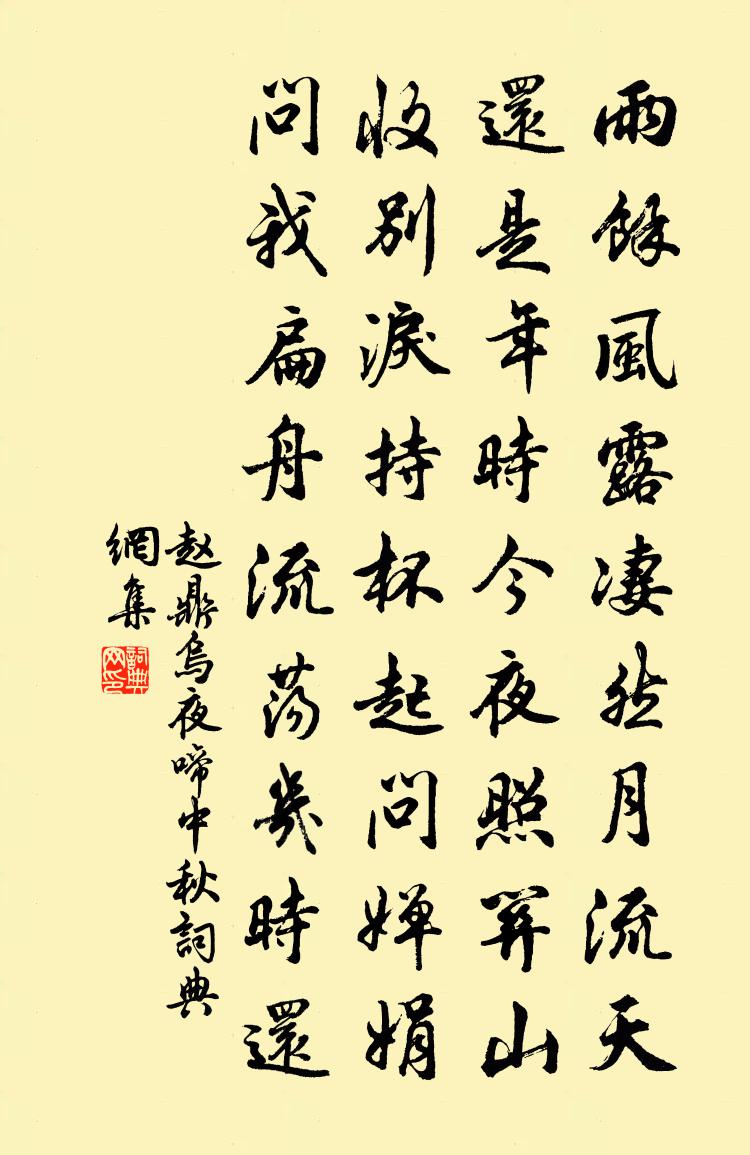 雨餘風露凄然月流天
還是年時今夜照関山
收別淚持杯起問嬋娟
問我扁舟流蕩幾時還
赵鼎烏夜啼中秋詞典
網集
詞典
网印